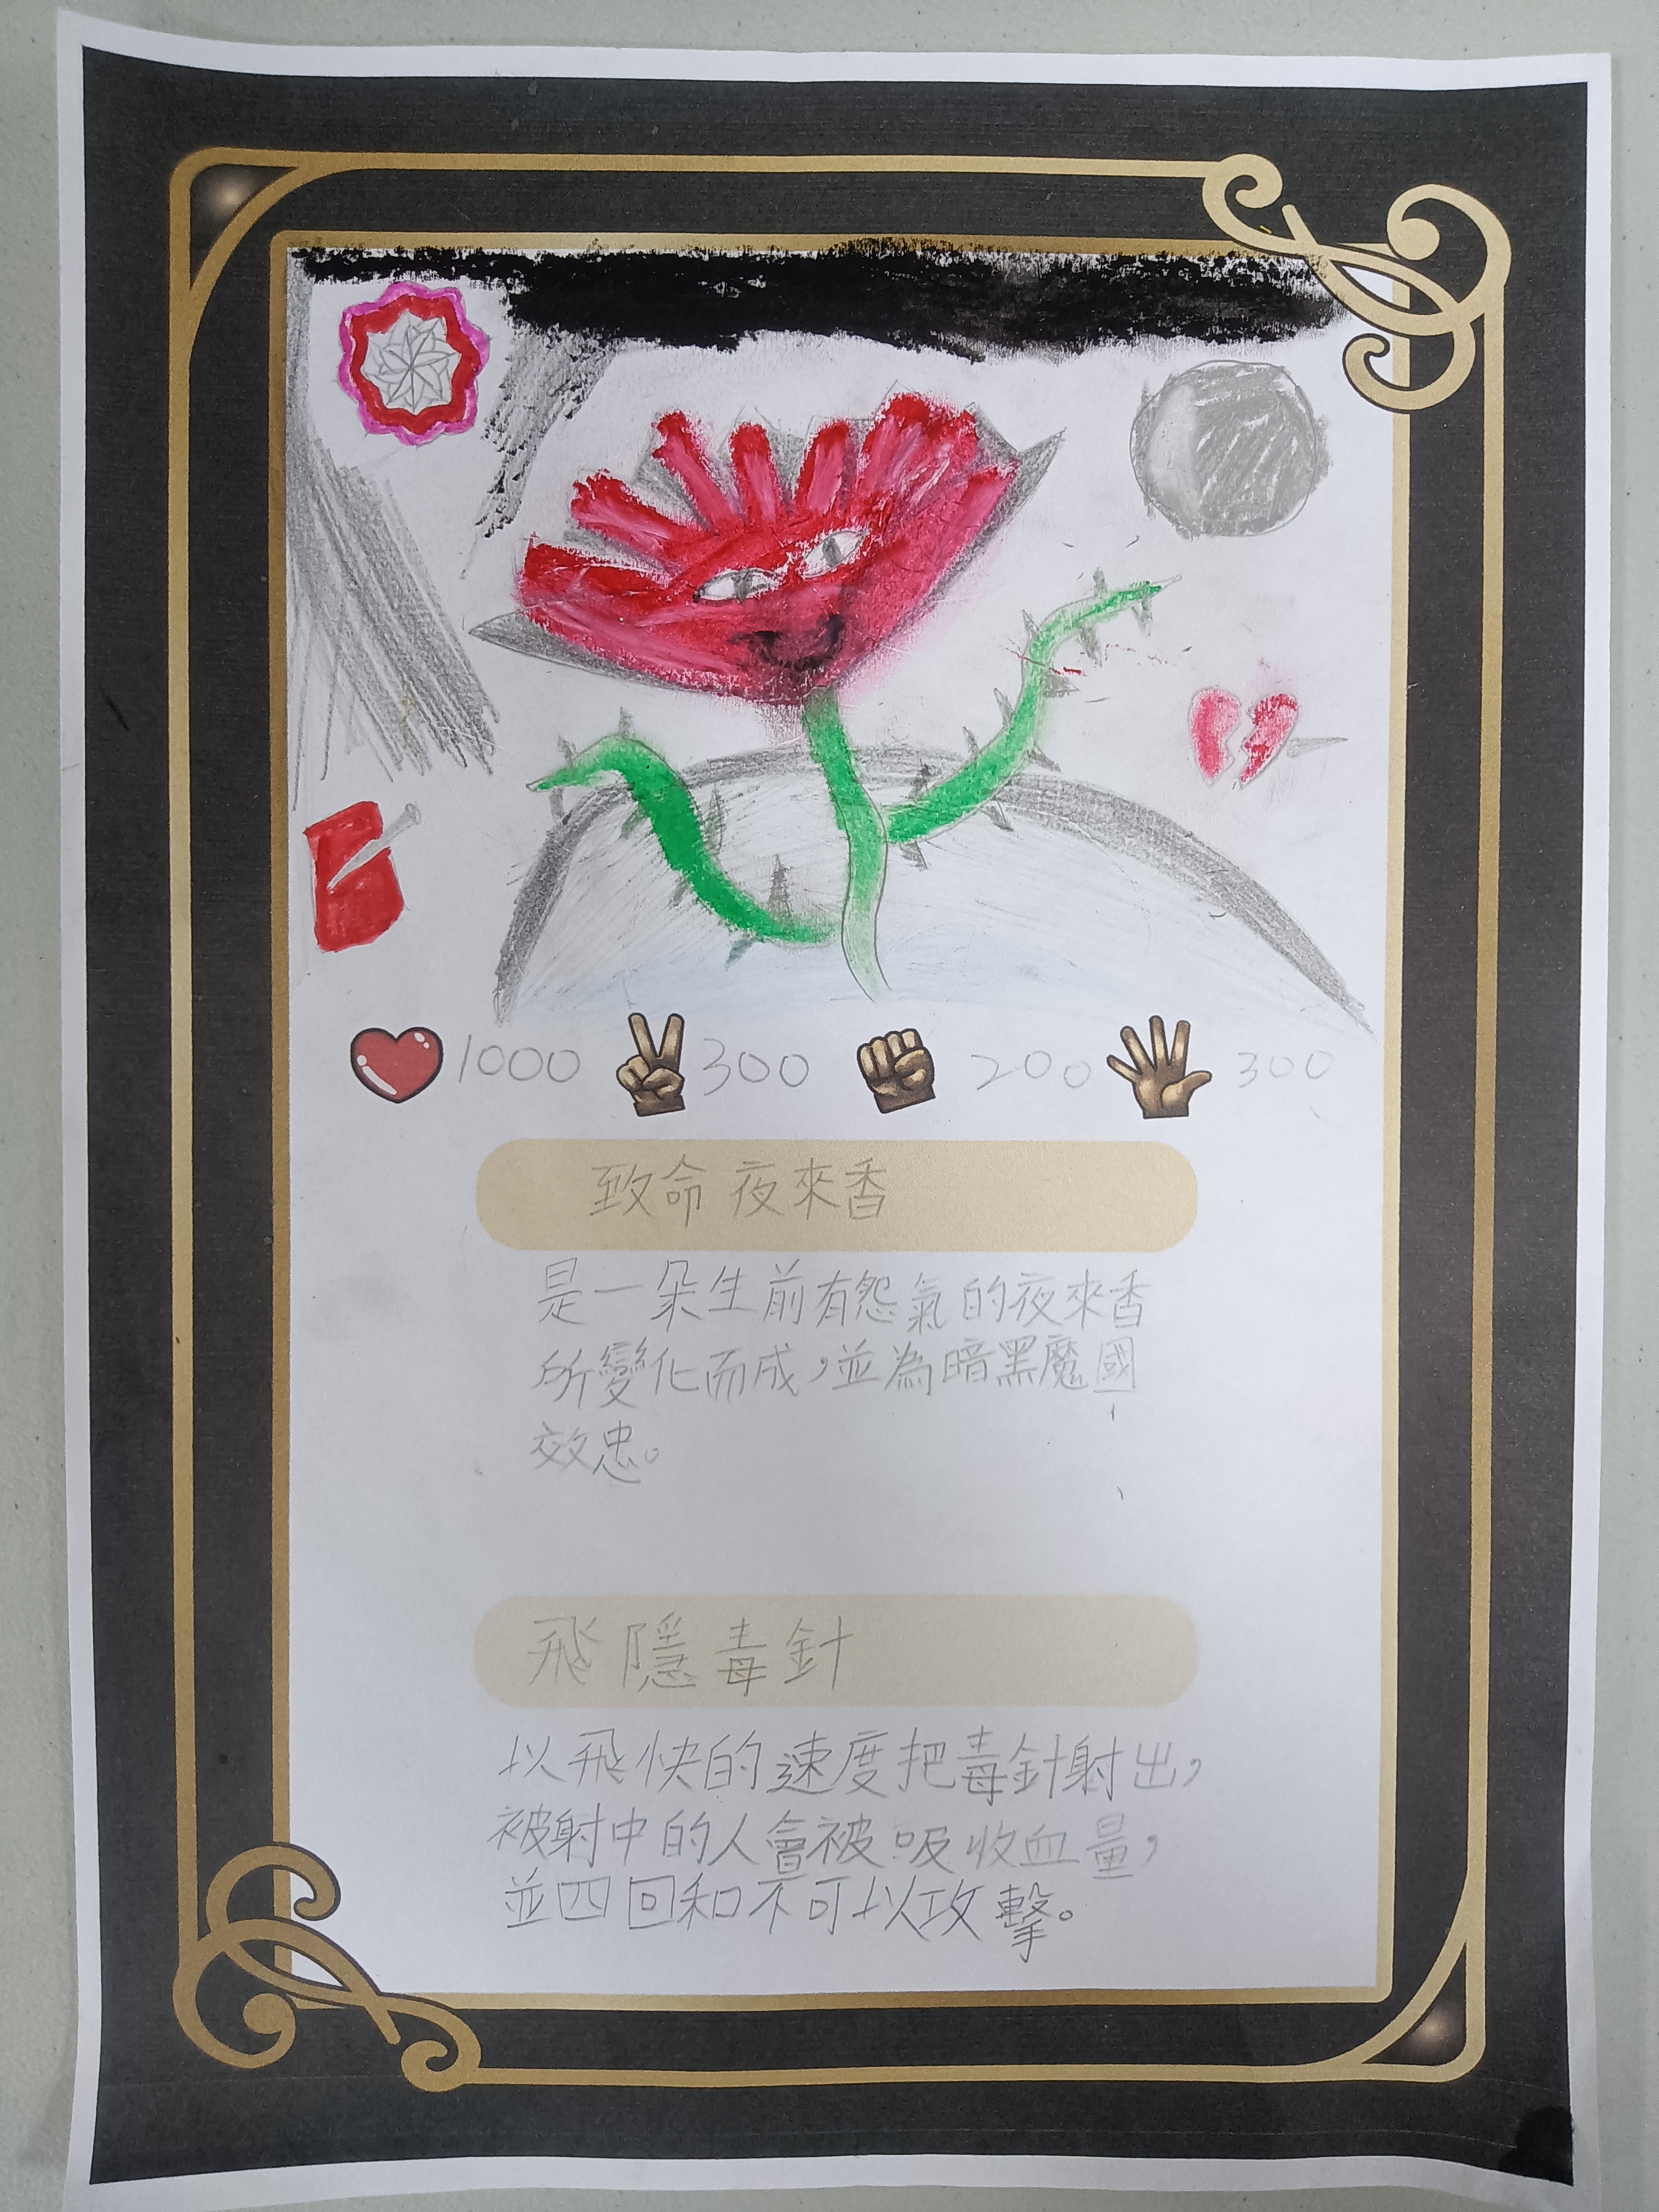 1000 300 200 300
致命夜來香
是一朵生前有怨氣的夜來香
所變化而成，並為暗黑魔國
效忠。
飛隱毒針
以飛快的速度把毒針射出，
被射中的人會被吸收血量，
並四回和不可以攻擊。